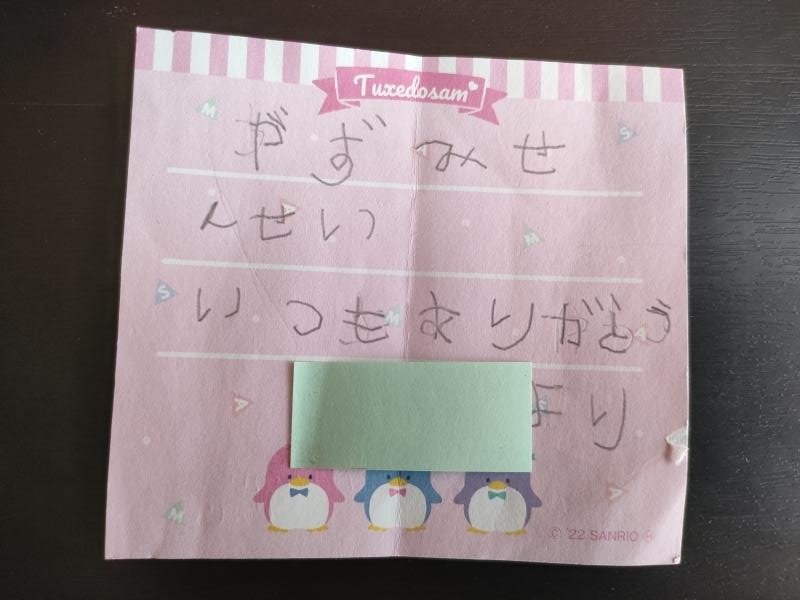 Tuxedosam
がずみせ
んせいつ
いつもありがとう
より
© '22 SANRIO ®